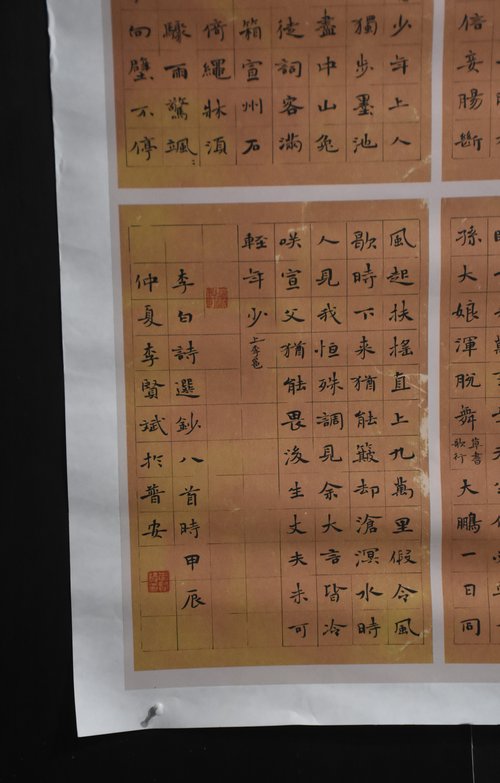 倍妾腸斷
少年上人
獨步墨池
盡中山兔
徒詞客滿
箱宣州石
倚繩牀須
驟雨驚颯
向壁不停
孫大娘渾脫舞草書歌行大鵬一日同
風起扶搖直上九萬里假令風
歇時下来猶能簸却滄溟水時
人見我恒殊調見余大言皆冷
咲宣父猶能畏後生丈夫未可
輕年少上李邕
李白詩選鈔八首時甲辰
仲夏李賢斌於普安